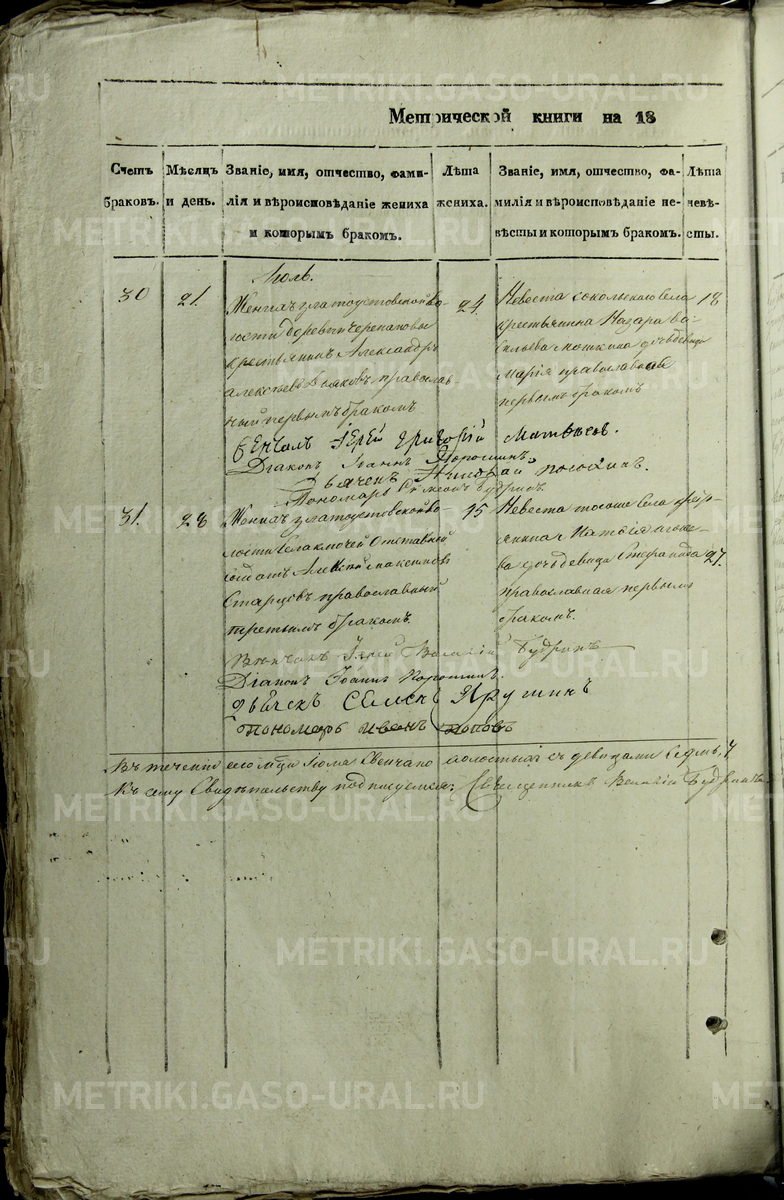 Метрической книги на 18
Счетъ браковъ.
Мѣсяцъ и день.
Званіе, имя, отчество, фами-
лія и вѣроисповѣданіе жениха
и которымъ бракомъ.
Лѣта жениха.
Званіе, имя, отчество, фа-
милія и вѣроисповѣданіе не-
вѣсты и которымъ бракомъ.
Лѣта невѣ-
сты.
Июль.
30
21.
Женихъ златоустовской во
лости деревни черепановы
крестьянинъ Александръ
алексѣевъ православ
ный первымъ бракомъ
24.
Невеста сокольскаго села
крестьянина Назара ва
сильева дочь девица
Марія православной
первымъ бракомъ
18
Венчалъ Іерей Григорій Матвѣевъ.
Діаконъ Іоаннъ Порошинъ
Дьячекъ Николай
Пономарь Симеонъ Будринъ.
31.
28
Женихъ златоустовской во-
лости села ключей отставный
солдатъ Алексѣй максимовъ
Старцовъ православный
третьимъ бракомъ
45
Невеста тогоже села
дочь девица Степанида
православная первымъ
бракомъ.
27.
Вѣнчалъ Іерей Василій Будринъ
Діаконъ Іоаннъ Порошинъ.
дьечекъ Семенъ Ярушинъ
пономарь иванъ поповъ
Въ течении сего м҃ца Июля Свенчано холостыхъ съ девицами Седмь, 7
Къ сему Свидѣтельству подписуемся: Священникъ Василій Будринъ
METRIKI.GASO-URAL.RU